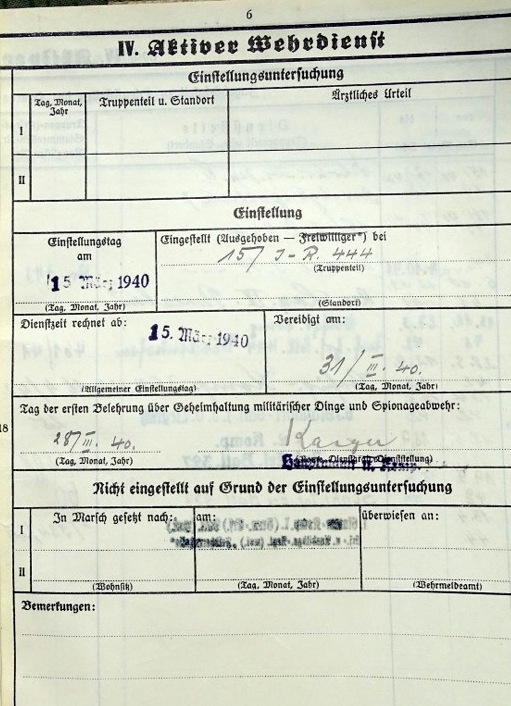 6
IV. Aktiver Wehrdienst
Einstellungsuntersuchung
Tag, Monat, Jahr
Truppenteil u. Standort
Ärztliches Urteil
I
II
Einstellung
Einstellungstag
am
15. März 1940
(Tag, Monat, Jahr)
Eingestellt (Ausgehoben — Freiwilliger*) bei
15/ J-R. 444
(Truppenteil)
(Standort)
Dienstzeit rechnet ab:
15. März 1940
(Allgemeiner Einstellungstag)
Vereidigt am:
31/III. 40.
(Tag, Monat, Jahr)
Tag der ersten Belehrung über Geheimhaltung militärischer Dinge und Spionageabwehr:
18
28/III. 40.
(Tag, Monat, Jahr)
Hauptmann u. Komp.
Nicht eingestellt auf Grund der Einstellungsuntersuchung
I
In Marsch gesetzt nach:
am:
überwiesen an:
II
(Wohnsitz)
(Tag, Monat, Jahr)
(Wehrmeldeamt)
Bemerkungen: